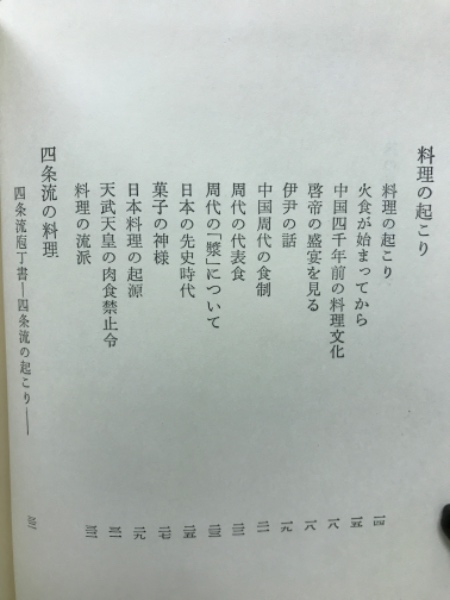 料理の起こり
料理の起こり 一四
火食が始まってから 一五
中国四千年前の料理文化 一八
啓帝の盛宴を見る 一八
伊尹の話 一九
中国周代の食制 二一
周代の代表食
周代の「漿」について
日本の先史時代 二五
菓子の神様 二七
日本料理の起源 二九
天武天皇の肉食禁止令
料理の流派
四条流の料理
四条流庖丁書―四条流の起こり――